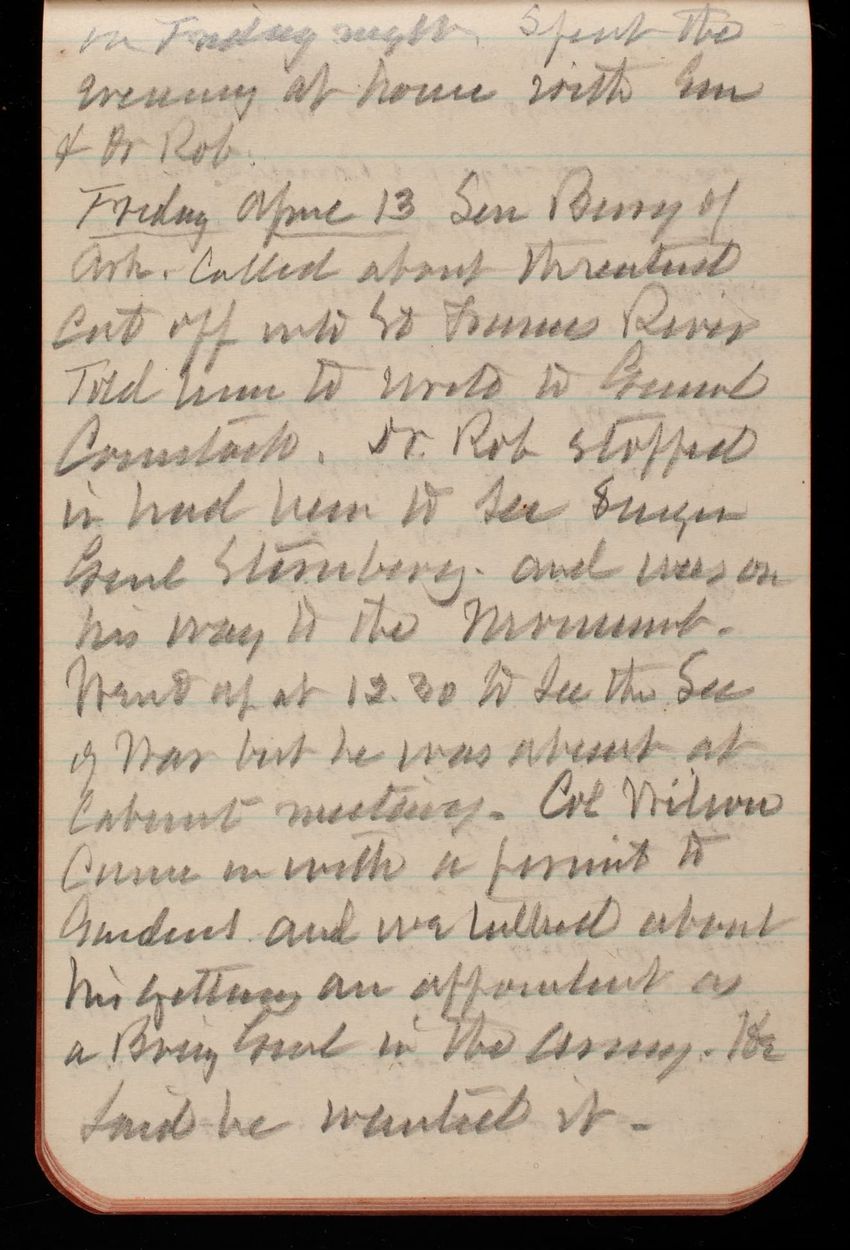 on Friday night. Spent the
evening at home with Em
& Dr Rob.
Friday April 13 Sen Berry of
Ark. Called about threatened
Cut off into St Francis River
Told him to write to General
Comstock. Dr. Rob stopped
in had been to see Surgeon
Genl Sternberg. and was on
his way to the Monument.
Went up at 12.30 to see the Sec
of War but he was absent at
Cabinet meeting. Col Wilson
Came in with a permit to
and we talked about
his getting an appointment as
a Brig Genl in the army. He
said he wanted it -